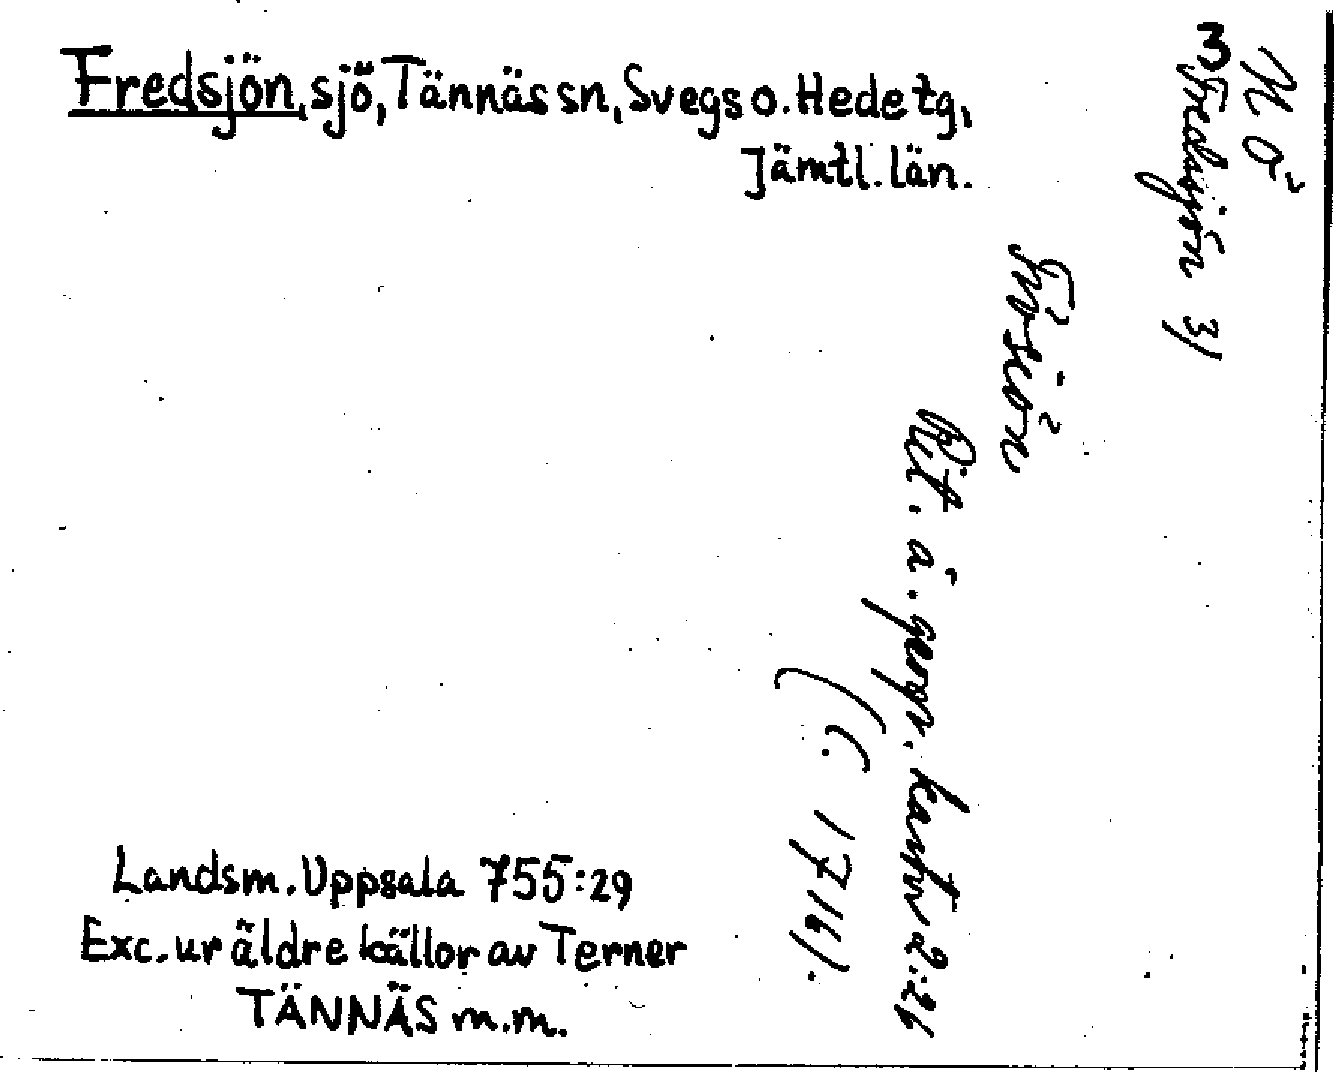 Fredsjön, sjö, Tännäs sn, Svegs o. Hede tg,
Jämtl. län.
3
N Ö
Fredsjön 3)
Rit. å. geogr. kartv 2:26
(C. 1716).
Landsm. Uppsala 755:29
Exc. ur äldre källor av Terner
TÄNNÄS m.m.